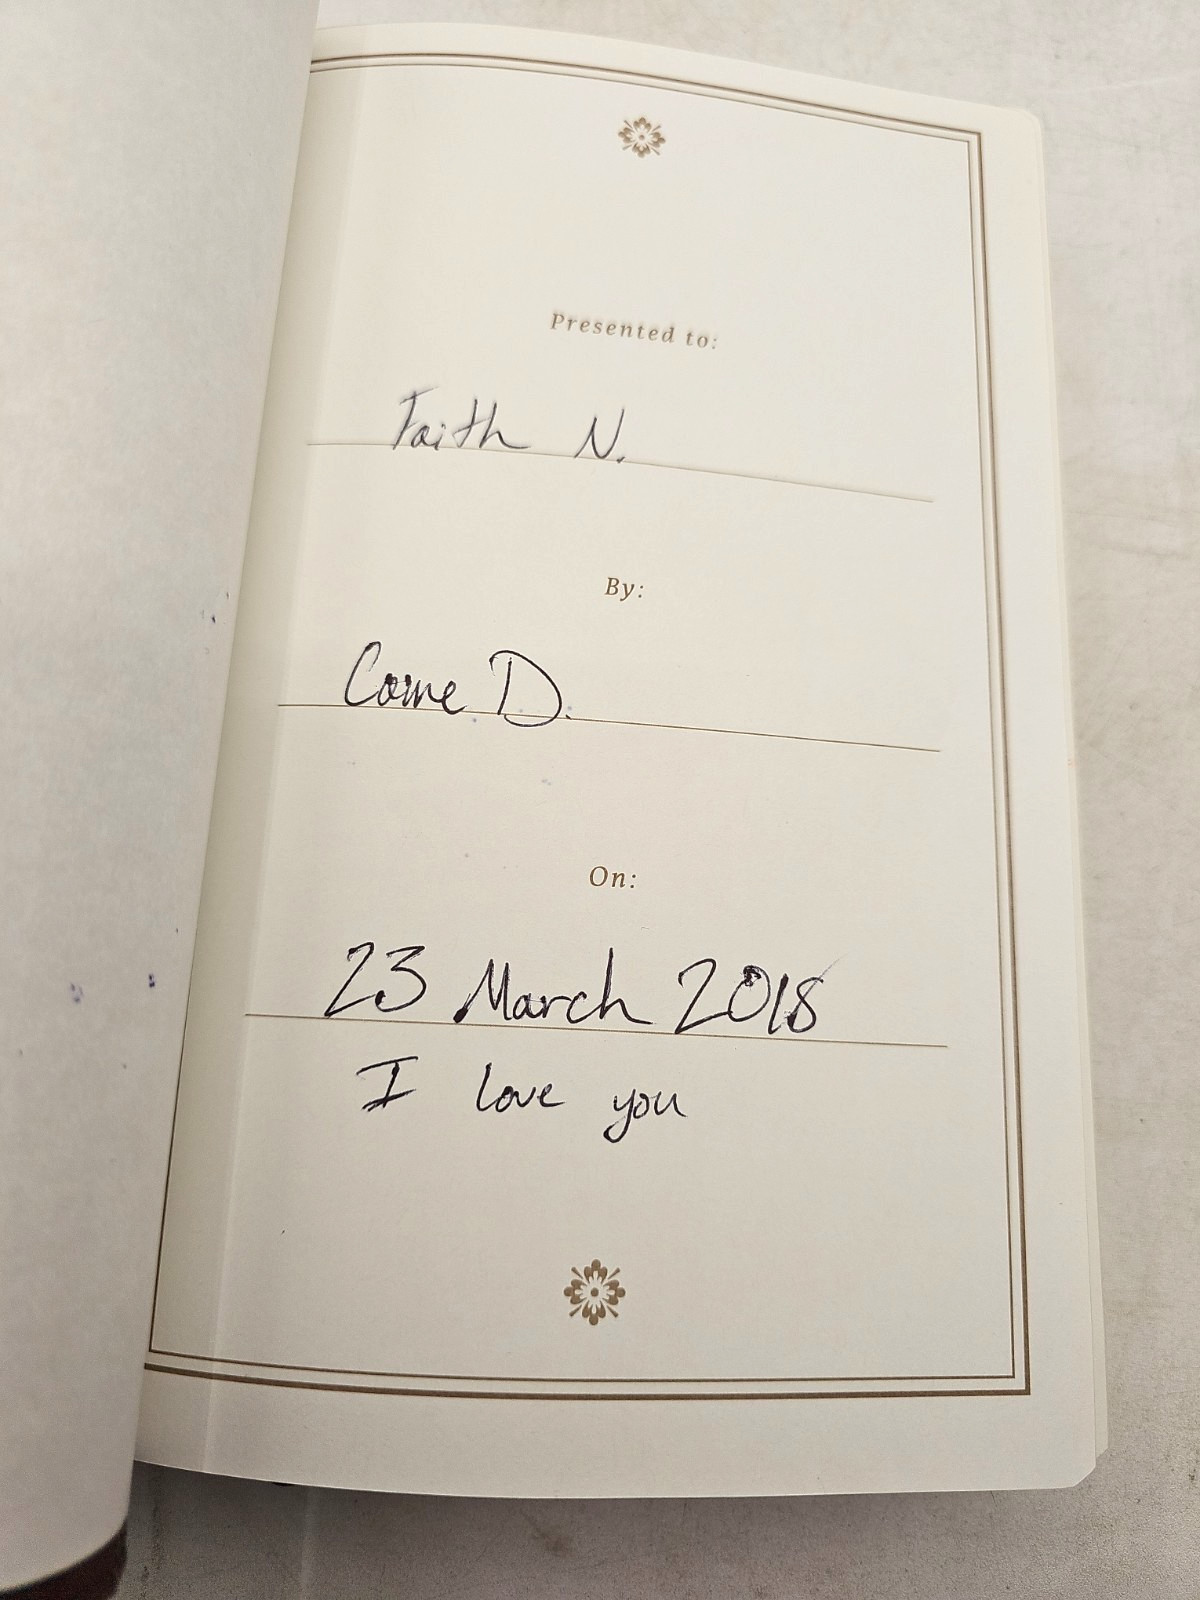 Presented to:
Faith N.
By:
D.
On:
23 March 2018
I love you